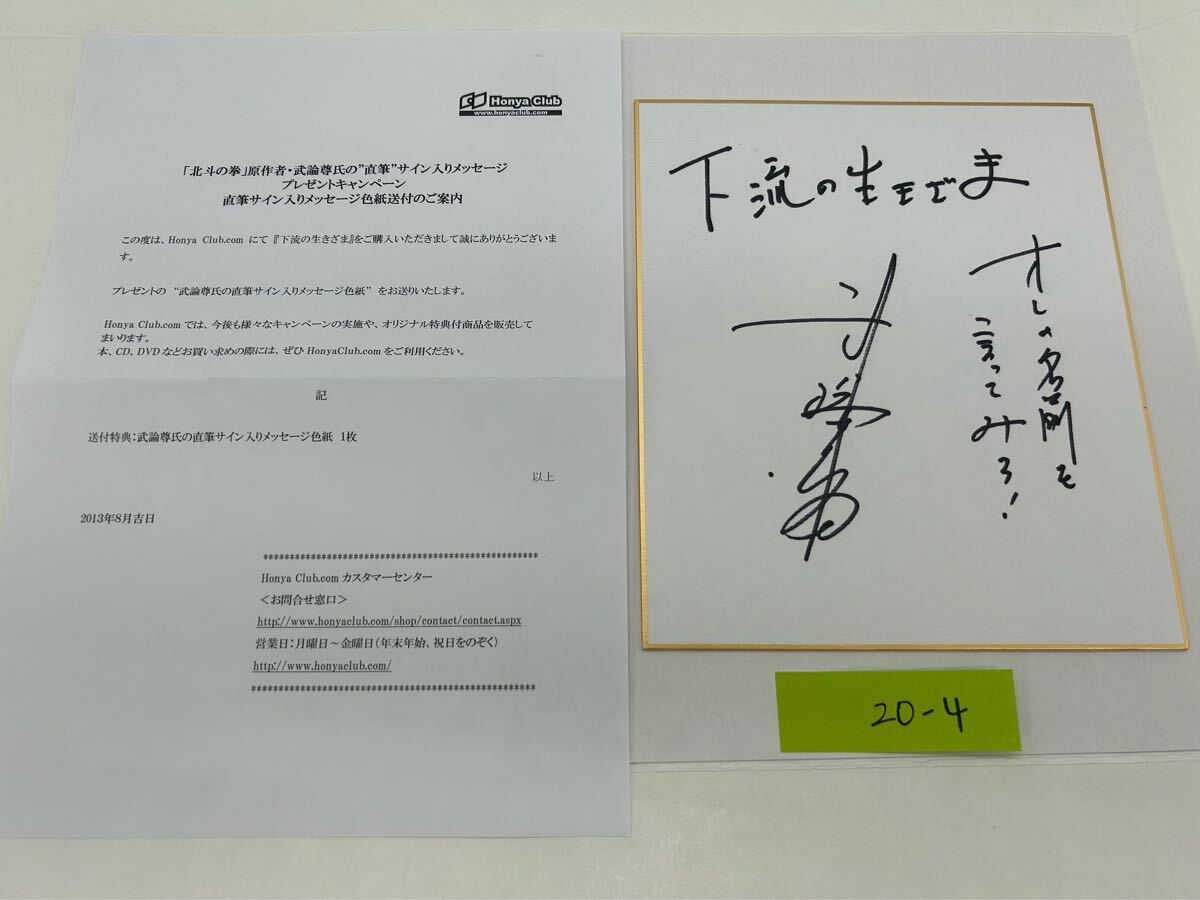 Honya Club
www.honyaclub.com
「北斗の拳」原作者・武論尊氏の”直筆”サイン入りメッセージ
プレゼントキャンペーン
直筆サイン入りメッセージ色紙送付のご案内
この度は、Honya Club.com にて『下流の生きざま』をご購入いただきまして誠にありがとうございま
す。
プレゼントの “武論尊氏の直筆サイン入りメッセージ色紙” をお送りいたします。
Honya Club.comでは、今後も様々なキャンペーンの実施や、オリジナル特典付商品を販売して
まいります。
本、CD、DVDなどお買い求めの際には、ぜひHonyaClub.comをご利用ください。
記
送付特典：武論尊氏の直筆サイン入りメッセージ色紙 1枚
以上
2013年8月吉日
****************************************************
Honya Club.com カスタマーセンター
＜お問合せ窓口＞
http://www.honyaclub.com/shop/contact/contact.aspx
営業日：月曜日～金曜日（年末年始、祝日をのぞく）
http://www.honyaclub.com/
******************************************************
下流の生きざま
オレの名前を
言ってみろ！
武論尊
20-4